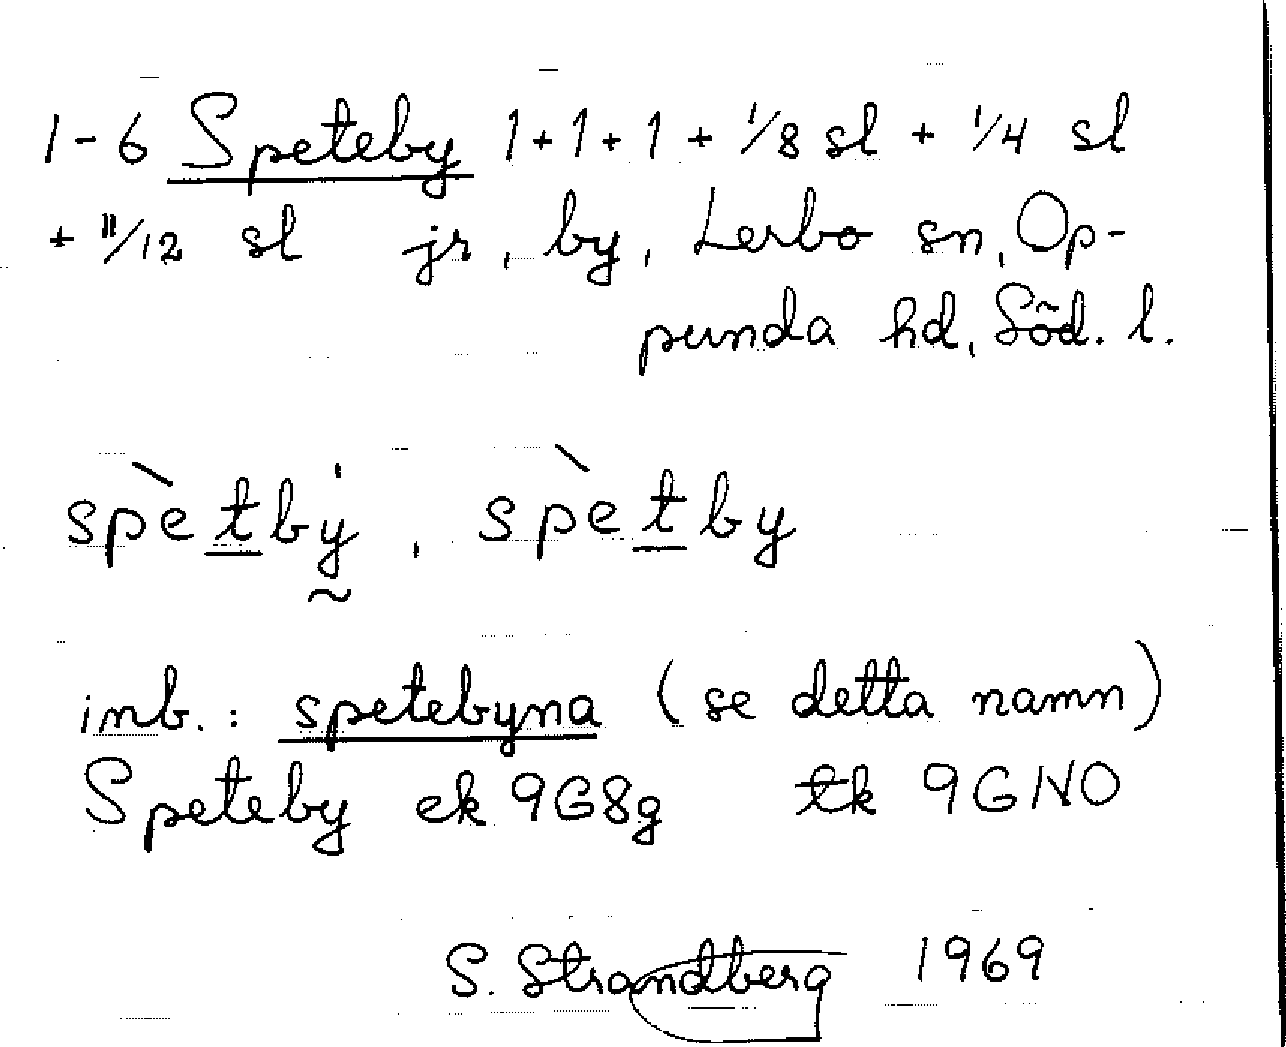 1-6 Speteby 1+1+1+ 1/8 sl + 1/4 sl
+ 11/12 sl jr, by, Lerbo sn, Op-
punda hd, Söd. l.
spètby, spètby
inb.: spetebyna (se detta namn)
Speteby ek 9G8g tk 9GNO
S. Strandberg 1969